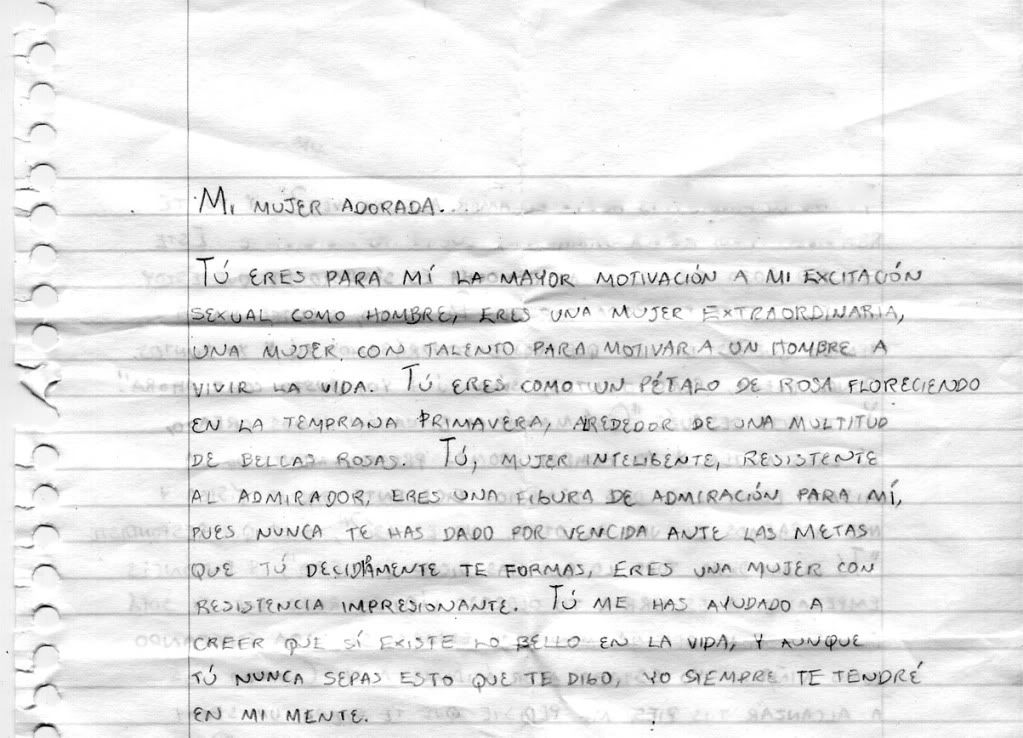 MI MUJER ADORADA...
TÚ ERES PARA MÍ LA MAYOR MOTIVACIÓN A MI EXCITACIÓN
SEXUAL COMO HOMBRE, ERES UNA MUJER EXTRAORDINARIA,
UNA MUJER CON TALENTO PARA MOTIVAR A UN HOMBRE A
VIVIR LA VIDA. TÚ ERES COMO UN PÉTALO DE ROSA FLORECIENDO
EN LA TEMPRANA PRIMAVERA, ALREDEDOR DE UNA MULTITUD
DE BELLAS ROSAS. TÚ, MUJER INTELIGENTE, RESISTENTE
AL ADMIRADOR, ERES UNA FIGURA DE ADMIRACIÓN PARA MÍ,
PUES NUNCA TE HAS DADO POR VENCIDA ANTE LAS METAS
QUE TÚ DECIDIAMENTE TE FORMAS, ERES UNA MUJER CON
RESISTENCIA IMPRESIONANTE. TÚ ME HAS AYUDADO A
CREER QUE SÍ EXISTE LO BELLO EN LA VIDA, Y AUNQUE
TÚ NUNCA SEPAS ESTO QUE TE DIGO, YO SIEMPRE TE TENDRÉ
EN MI MENTE.